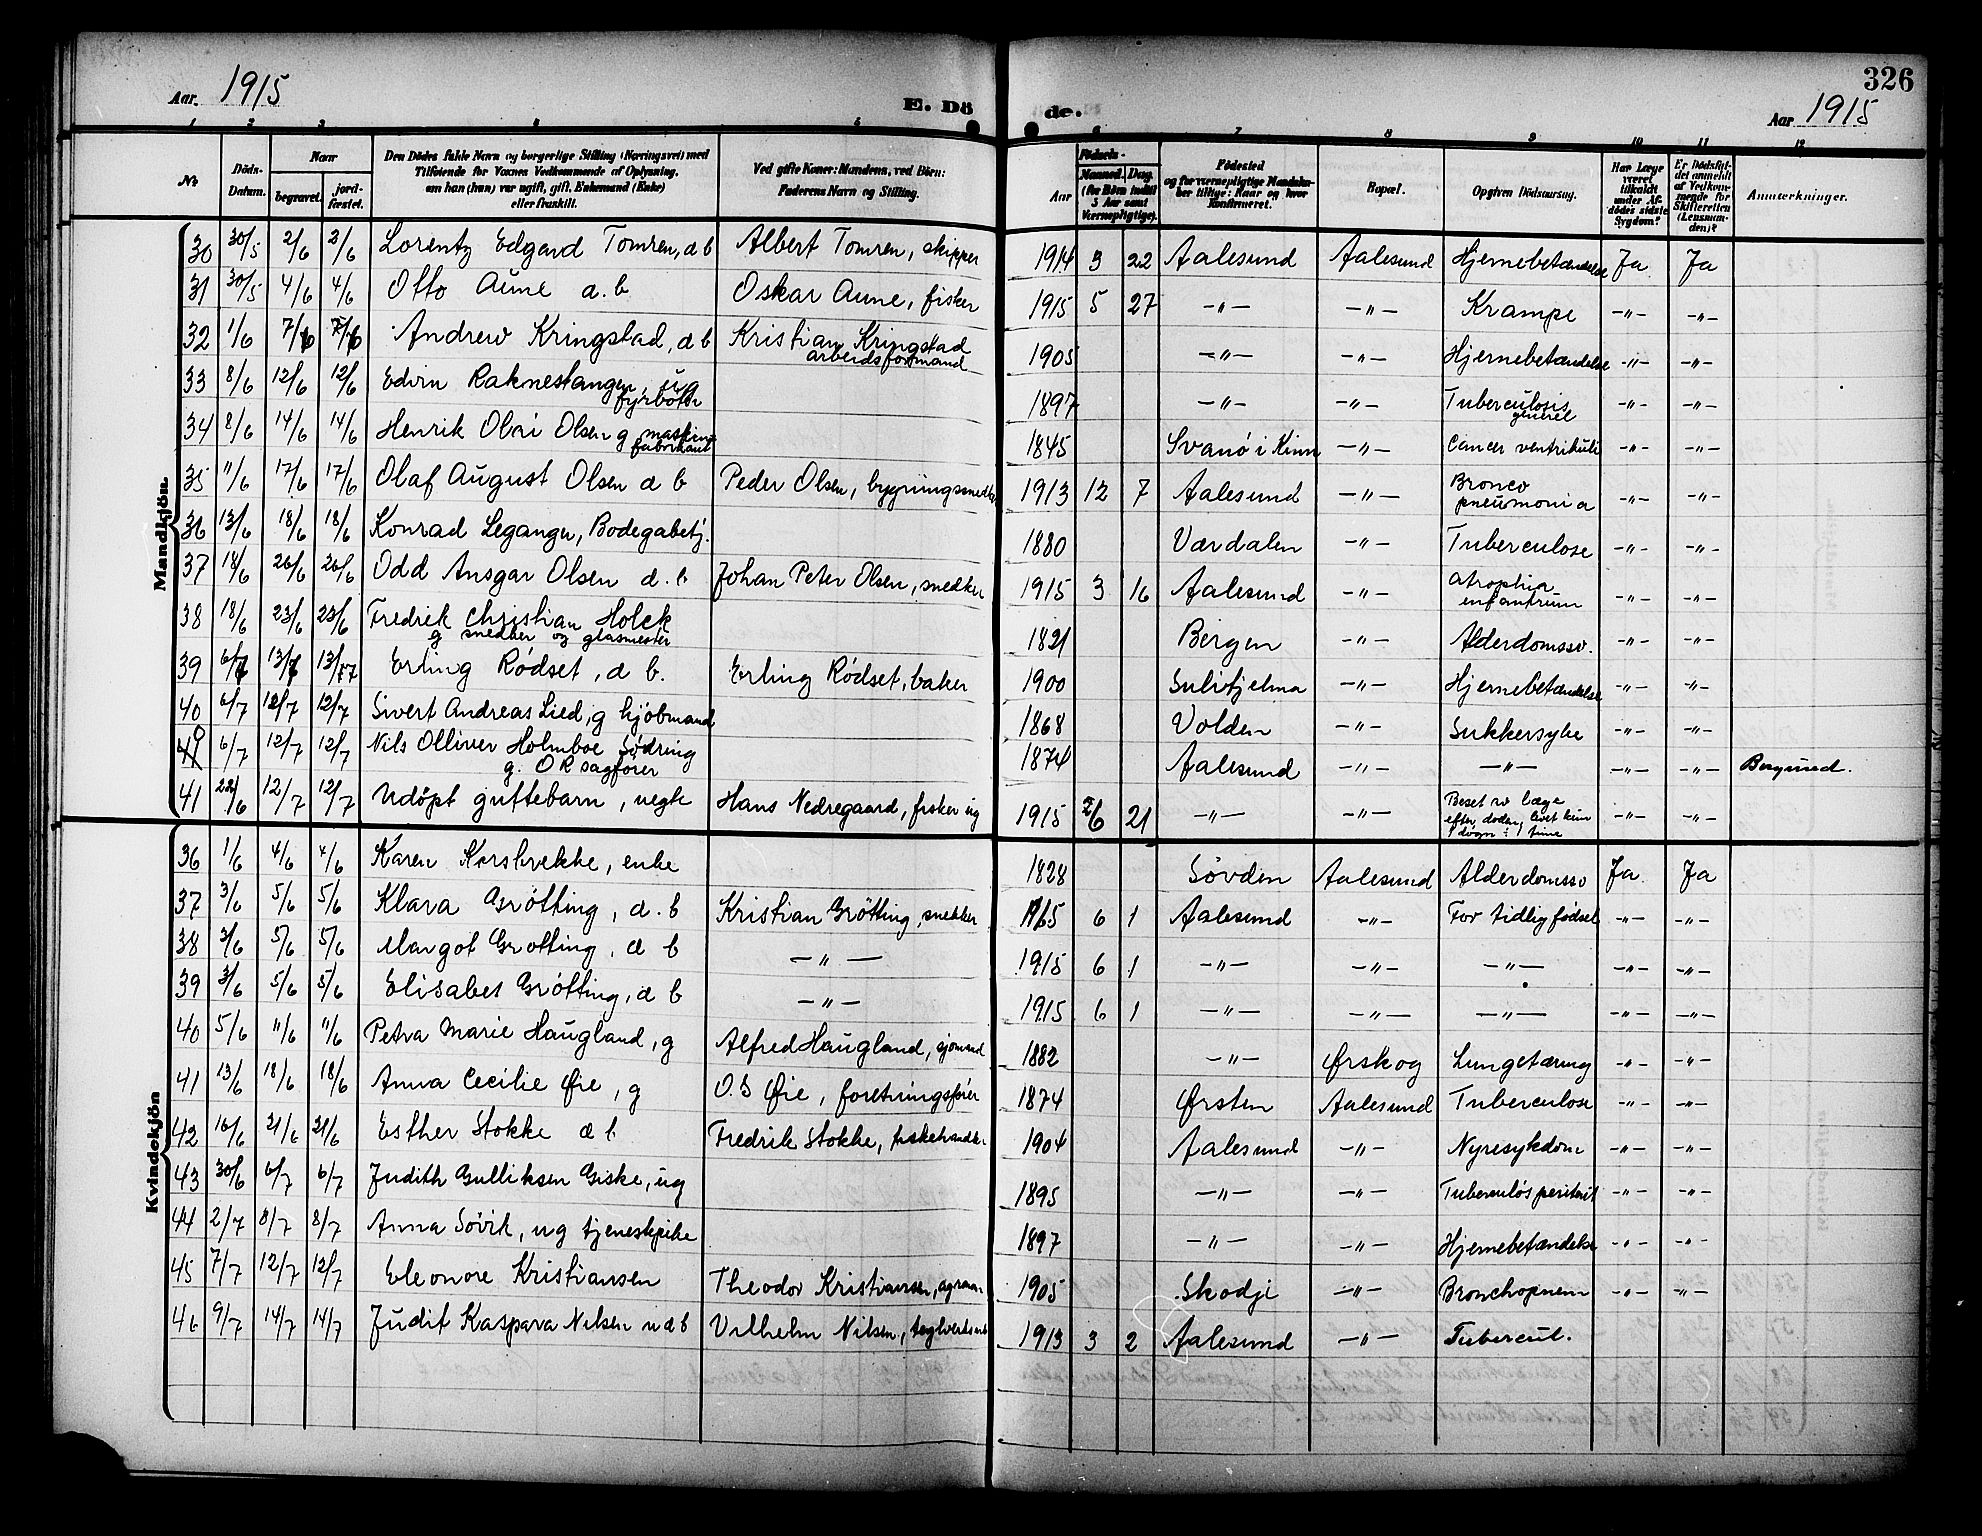 Aar. 1915
E. Dö
de.
Aar 1915
326
1 2 3 4 5 6 7 8 9 10 11 12
No
Döds-Datum.
Naar
begravet.
jord-fæstet.
Den Dödes fulde Navn og borgerlige Stilling (Næringsvei) med
Tilföiende for Voxnes Vedkommende af Oplysning,
om han (hun) var ugift, gift, Enkemand (Enke)
eller fraskilt.
Ved gifte Koner: Mandens, ved Börn:
Faderens Navn og Stilling.
Födsels-
Aar
Maaned. Dag.
(for Börn indtil
3 Aar samt
Værnepligtige).
Födested
og for værnepligtige Mandskaber tillige: Naar og hvor
konfirmeret.
Bopæl.
Opgiven Dödsaarsag.
Har Læge
været
tilkaldt
under Afdödes sidste
Sygdom?
Er Dödsfaldet anmeldt
af Vedkommende for
Skifteretten
(Lensmanden)?
Anmærkninger.
Mandkjön.
30 30/5 2/6 2/6 Lorentz Edgard Tomren, d b Albert Tomren, skipper 1914 3 22 Aalesund Aalesund Hjernebetændelse Ja Ja
31 30/5 4/6 4/6 Otto Aune d. b Oskar Aune, fisker 1915 5 27 -"- -"- Krampe -"- -"-
32 1/6 7/6 7/6 Andrew Kringstad, d b Kristian Kringstad arbeidsformand 1905 -"- -"- Hjernebetændelse -"- -"-
33 8/6 12/6 12/6 Edvin Raknestangen, ug fyrbøter 1897 -"- -"- Tuberculosis generel -"- -"-
34 8/6 14/6 14/6 Henrik Olai Olsen g maskinfabrikant 1845 Svanö i Kinn -"- Cancer ventrikuli -"- -"-
35 11/6 17/6 17/6 Olaf August Olsen d b Peder Olsen, bygningssnedker 1913 12 7 Aalesund -"- Bronco pneumonia -"- -"-
36 13/6 18/6 18/6 Konrad Leganger, Bodegabetj. 1880 Værdalen -"- Tuberculose -"- -"-
37 18/6 26/6 26/6 Odd Ansgar Olsen d. b Johan Peter Olsen, snedker 1915 3 16 Aalesund -"- atrophia infantrum -"- -"-
38 18/6 23/6 23/6 Fredrik Christian Holck g snedker og glasmester 1821 Bergen -"- Alderdomssv. -"- -"-
39 6/7 13/7 13/7 Erling Rødset, d b. Erling Rødset, baker 1900 Sulitjelma -"- Hjernebetændelse -"- -"-
40 6/7 12/7 12/7 Sivert Andreas Lied, g kjöbmand 1868 Volden -"- Sukkersyke -"- -"-
6/7 12/7 12/7 Nils Olliver Holmboe Södring g. OR sagfører 1874 Aalesund -"- -"- -"- -"- Borgund.
41 22/6 12/7 12/7 Udöpt guttebarn, uegte Hans Nedregaard, fisker ug 1915 2/6 21 -"- -"- Beset av læge efter døden, livet kun 1 døgn 1 time -"- -"-
Kvindekjön
36 1/6 4/6 4/6 Karen Korsbrekke, enke 1828 Søvden Aalesund Alderdomssv Ja Ja
37 3/6 5/6 5/6 Klara Grötting, d. b Kristian Grötting, snekker 1915 6 1 Aalesund -"- For tidlig fødsel -"- -"-
38 3/6 5/6 5/6 Margot Grötting, d b -"- 1915 6 1 -"- -"- -"- -"- -"-
39 3/6 5/6 5/6 Elisabet Grötting, d b -"- 1915 6 1 -"- -"- -"- -"- -"-
40 5/6 11/6 11/6 Petra Marie Haugland, g Alfred Haugland, sjömand 1882 -"- Ørskog Lungetæring -"- -"-
41 13/6 18/6 18/6 Anna Cecilie Øie, g O.S Øie, foretningsfører 1874 Ørsten Aalesund Tuberculose -"- -"-
42 16/6 21/6 21/6 Esther Stokke d b Fredrik Stokke, fiskehandler 1904 Aalesund -"- Nyresykdom -"- -"-
43 30/6 6/7 6/7 Judith Gulliksen Giske, ug 1895 -"- -"- Tuberculös peritonit -"- -"-
44 2/7 8/7 8/7 Anna Sövik, ug tjenestepike 1897 -"- -"- Hjernebetændelse -"- -"-
45 7/7 12/7 12/7 Eleonore Kristiansen Theodor Kristiansen, 1905 Skodje -"- Bronchopneum -"- -"-
46 9/7 14/7 14/7 Judit Kaspara Nilsen u d b Vilhelm Nilsen, 1913 3 2 Aalesund -"- Tubercul.